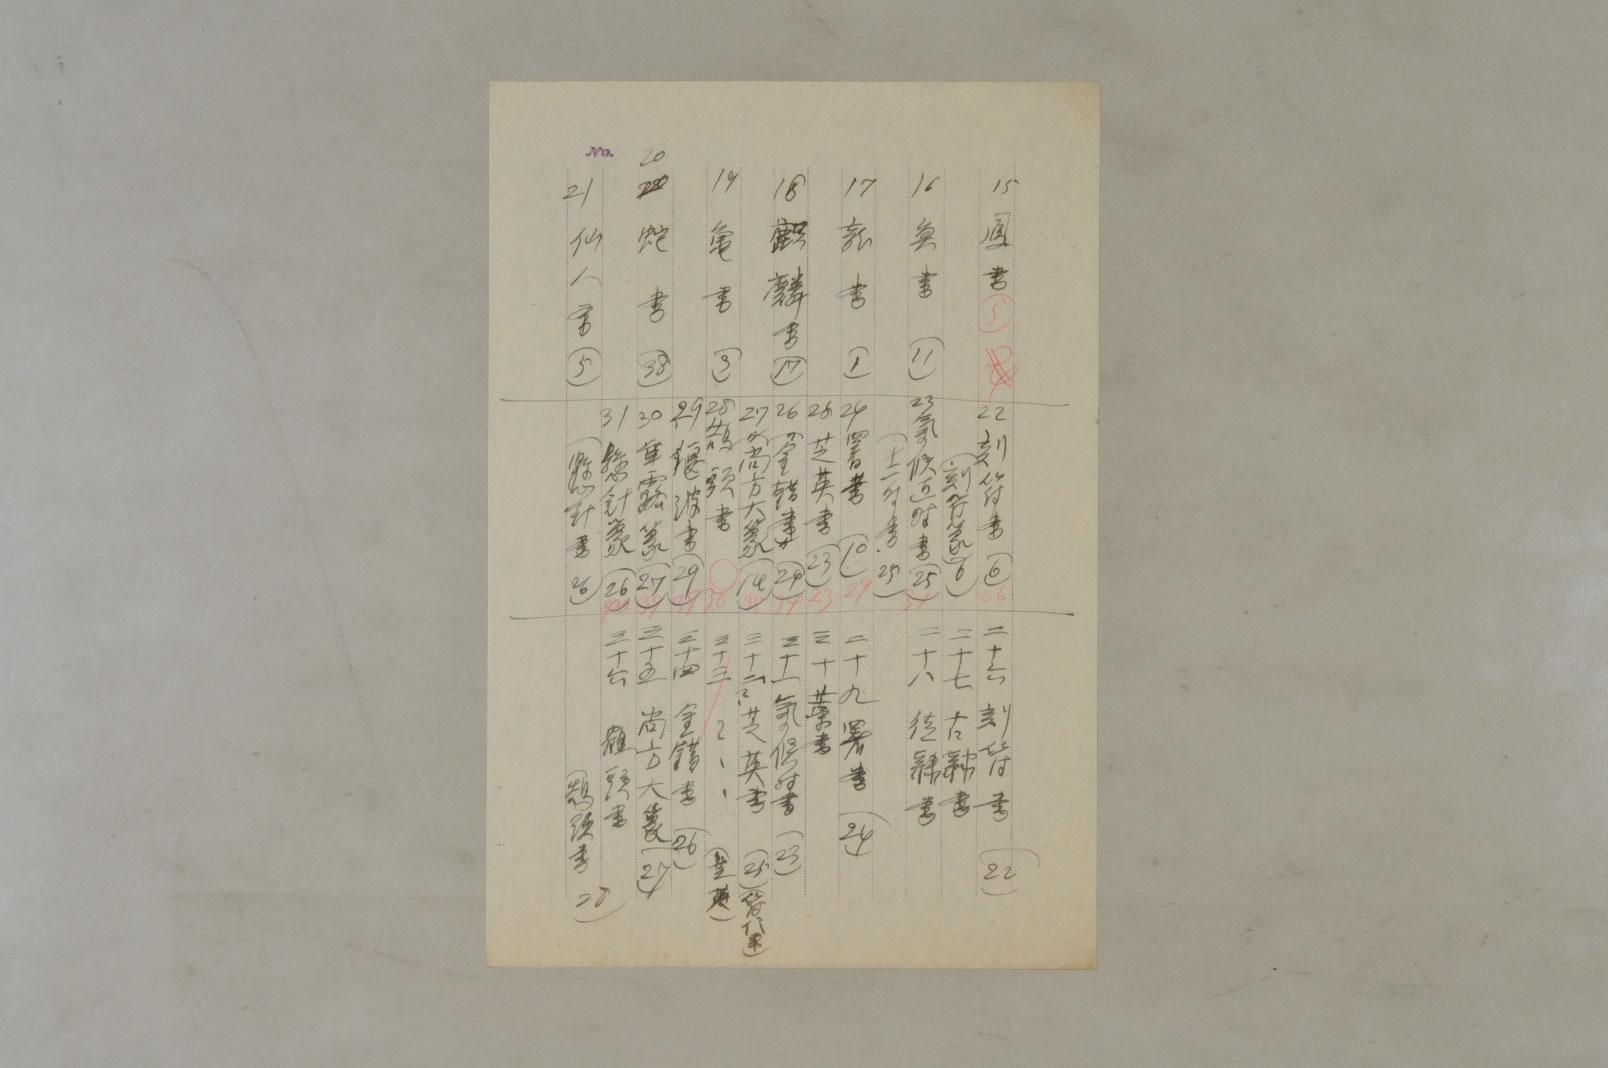 No.
15 鳳書 (5)
16 魚書 (11)
17 龍書 (1)
18 麒麟書 (17)
19 亀書 (3)
20 蛇書 (38)
21 仙人書 (5)
22 刻符書 (6) 26
(刻符篆 6)
23 氣候直时書 (25)
(十二时書 25)
24 署書 (10) 29
25 芝英書 (23) 23
26 (金錯書) (24)
27 (尚方大篆) (14)
28 鵠頭書
29 偃波書 (29)
30 垂露篆 (27)
31 懸針篆 (26)
(懸针書 26)
二十六 刻符書 (22)
二十七 古隸書
二十八 徒隸書
二十九 署書 (24)
三十 藁書
三十一 氣候时書 (23)
三十二 芝英書 (25)
三十三
三十四 金錯書 (26)
三十五 尚方大篆 (27)
三十六 鶴頭書
(鵠頭書 28)